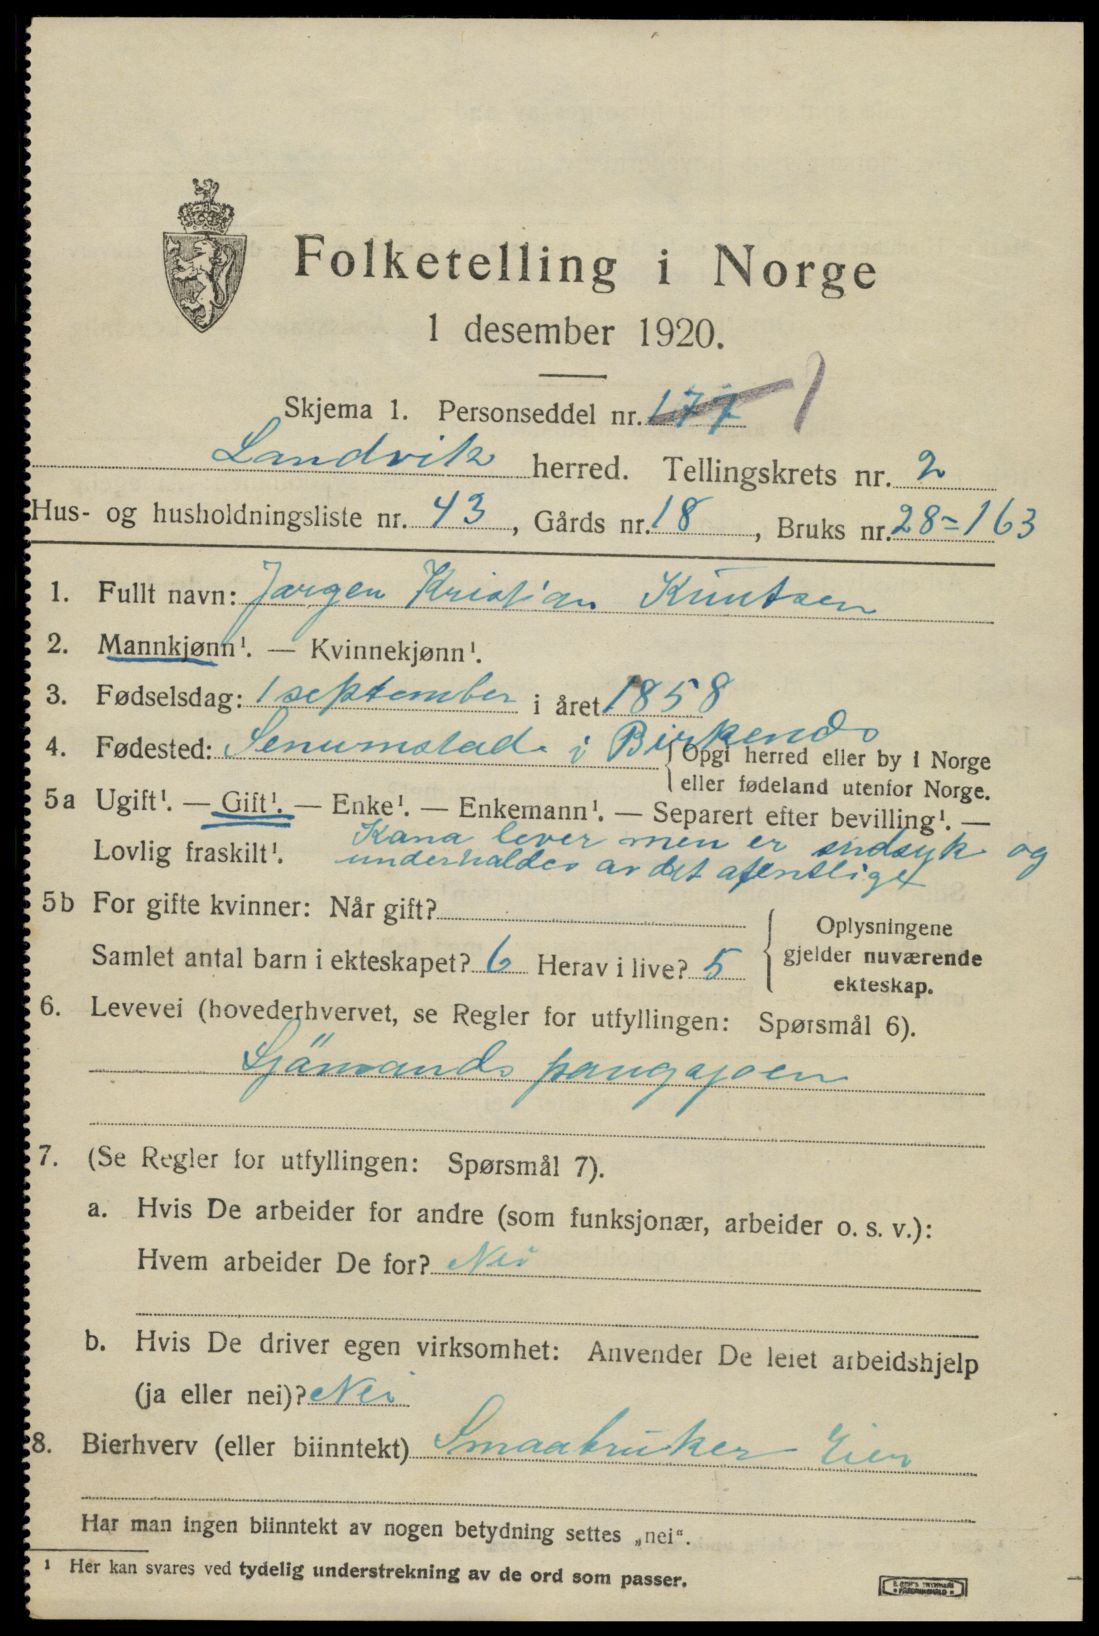 Folketelling i Norge
1 desember 1920.
Skjema 1. Personseddel nr. 177 1
Landvik herred. Tellingskrets nr. 2
Hus- og husholdningsliste nr. 43, Gårds nr. 18, Bruks nr. 28=163
1. Fullt navn: Jørgen Kristian Knutsen
2. Mannkjønn¹. — Kvinnekjønn¹.
3. Fødselsdag: 1 september i året 1858
4. Fødested: Senumstad i Birkends
{Opgi herred eller by i Norge
eller fødeland utenfor Norge.
5a Ugift¹. — Gift¹. — Enke¹. — Enkemann¹. — Separert efter bevilling¹. —
Kana lever men er sindsyk og
Lovlig fraskilt¹. underhaldes av det afentlige
5b For gifte kvinner: Når gift?
Samlet antal barn i ekteskapet? 6 Herav i live? 5
{Oplysningene
gjelder nuværende
ekteskap.
6. Levevei (hovederhvervet, se Regler for utfyllingen: Spørsmål 6).
Sjömands
7. (Se Regler for utfyllingen: Spørsmål 7).
a. Hvis De arbeider for andre (som funksjonær, arbeider o. s. v.):
Hvem arbeider De for? Nei
b. Hvis De driver egen virksomhet: Anvender De leiet arbeidshjelp
(ja eller nei)? Nei
8. Bierhverv (eller biinntekt) Smaabruker Eier
Har man ingen biinntekt av nogen betydning settes „nei“.
¹ Her kan svares ved tydelig understrekning av de ord som passer.